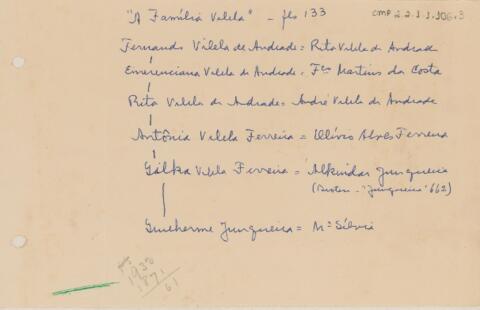 "A Família Vilela" - fls 133
CMP 2.2.1.1.306.3
Fernando Vilela de Andrade = Rita Vilela de Andrade
Emerenciana Vilela de Andrade = Fco Martins da Costa
Rita Vilela de Andrade = André Vilela de Andrade
Antônia Vilela Ferreira = Olívio Alves Ferreira
Gilka Vilela Ferreira = Alkindar Junqueira
"Junqueira" 662)
Guilherme Junqueira = Mª Sílvia
1938
1871
61